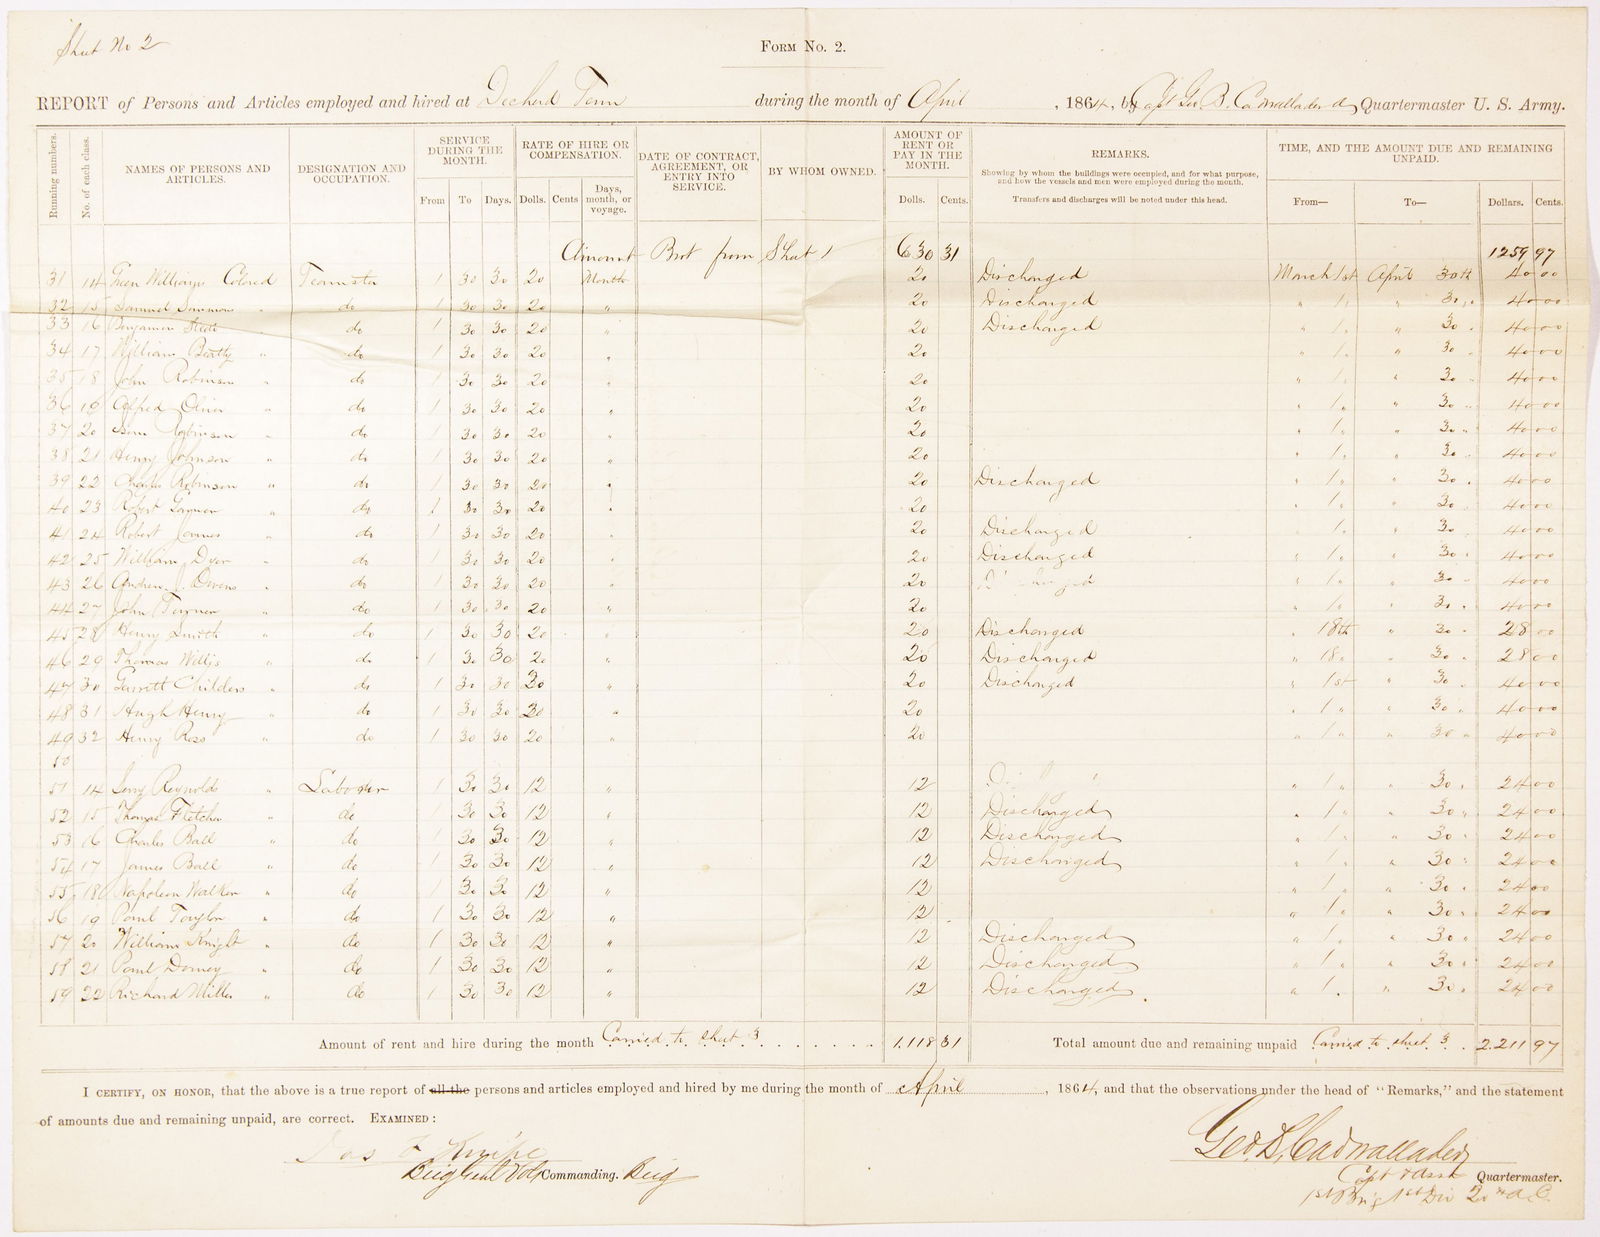 Sheet No 2
FORM NO. 2.
REPORT of Persons and Articles employed and hired at Decherd Tenn during the month of April, 1864, by Capt Geo B. Cadwallader a Quartermaster U. S. Army.
Running numbers. No. of each class. NAMES OF PERSONS AND ARTICLES. DESIGNATION AND OCCUPATION. SERVICE DURING THE MONTH. From To Days. RATE OF HIRE OR COMPENSATION. Dolls. Cents Days, month, or voyage. DATE OF CONTRACT, AGREEMENT, OR ENTRY INTO SERVICE. BY WHOM OWNED. AMOUNT OF RENT OR PAY IN THE MONTH. Dolls. Cents. REMARKS. Showing by whom the buildings were occupied, and for what purpose, and how the vessels and men were employed during the month. Transfers and discharges will be noted under this head. TIME, AND THE AMOUNT DUE AND REMAINING UNPAID. From— To— Dollars. Cents.
Amount Brot from Sheet 1 630 31 1259 97
31 14 Green Williams Colored Teamster 1 30 30 20 Month 20 Discharged March 1st April 30th 40 00
32 15 Samuel Simmons " do 1 30 30 20 " 20 Discharged " 1 " " 30 " 40 00
33 16 Benjamin " do 1 30 30 20 " 20 Discharged " 1 " " 30 " 40 00
34 17 William Beatty " do 1 30 30 20 " 20 " 1 " " 30 " 40 00
35 18 John Robinson " do 1 30 30 20 " 20 " 1 " " 30 " 40 00
36 19 Alfred Oliver " do 1 30 30 20 " 20 " 1 " " 30 " 40 00
37 20 Robinson " do 1 30 30 20 " 20 " 1 " " 30 " 40 00
38 21 Henry Johnson " do 1 30 30 20 " 20 " 1 " " 30 " 40 00
39 22 Charles Robinson " do 1 30 30 20 " 20 Discharged " 1 " " 30 " 40 00
40 23 Robert " do 1 30 30 20 " 20 " 1 " " 30 " 40 00
41 24 Robert James " do 1 30 30 20 " 20 Discharged " 1 " " 30 " 40 00
42 25 William Dyer " do 1 30 30 20 " 20 Discharged " 1 " " 30 " 40 00
43 26 Andrew J. Owens " do 1 30 30 20 " 20 " 1 " " 30 " 40 00
44 27 John Turner " do 1 30 30 20 " 20 " 1 " " 30 " 40 00
45 28 Henry Smith " do 1 30 30 20 " 20 Discharged " 18th " 30 " 28 00
46 29 Thomas Willis " do 1 30 30 20 " 20 Discharged " 18 " " 30 " 28 00
47 30 Garrett Childers " do 1 30 30 20 " 20 Discharged " 1st " 30 " 40 00
48 31 Hugh Henry " do 1 30 30 20 " 20 " 1 " " 30 " 40 00
49 32 Henry Ross " do 1 30 30 20 " 20 " 1 " " 30 " 40 00
50
51 14 Jerry Reynolds " Laborer 1 30 30 12 " 12 " 1 " " 30 " 24 00
52 15 Thomas Fletcher " do 1 30 30 12 " 12 Discharged " 1 " " 30 " 24 00
53 16 Charles Ball " do 1 30 30 12 " 12 Discharged " 1 " " 30 " 24 00
54 17 James Ball " do 1 30 30 12 " 12 Discharged " 1 " " 30 " 24 00
55 18 Napoleon Walker " do 1 30 30 12 " 12 " 1 " " 30 " 24 00
56 19 Paul Taylor " do 1 30 30 12 " 12 " 1 " " 30 " 24 00
57 20 William Knight " do 1 30 30 12 " 12 Discharged " 1 " " 30 " 24 00
58 21 Paul " do 1 30 30 12 " 12 Discharged " 1 " " 30 " 24 00
59 22 Richard Miller " do 1 30 30 12 " 12 Discharged " 1 " " 30 " 24 00
Amount of rent and hire during the month Carried to sheet 3 1.118 31 Total amount due and remaining unpaid Carried to sheet 3 2.211 97
I CERTIFY, ON HONOR, that the above is a true report of all the persons and articles employed and hired by me during the month of April, 1864, and that the observations under the head of "Remarks," and the statement
of amounts due and remaining unpaid, are correct. EXAMINED:
Geo. B. Cadwallader
Jos F Knipe
Brig Genl Vols Commanding. Brig
Capt & Asst Quartermaster.
1st Brig 1st Div 20th A.C.